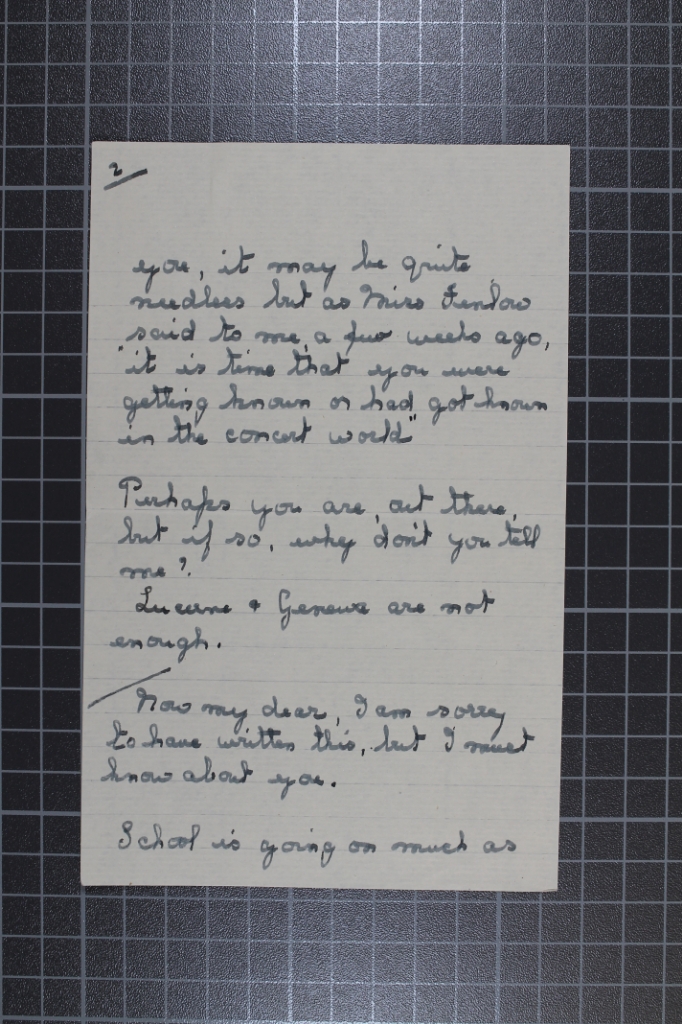 2
you, it may be quite
needless but as Miss Fenlow
said to me, a few weeks ago,
"it is time that you were
getting known or had got known
in the concert world"
Perhaps you are, out there,
but if so, why don't you tell
me?
Lucerne & Geneva are not
enough.
Now my dear, I am sorry
to have written this, but I must
know about you.
School is going on much as